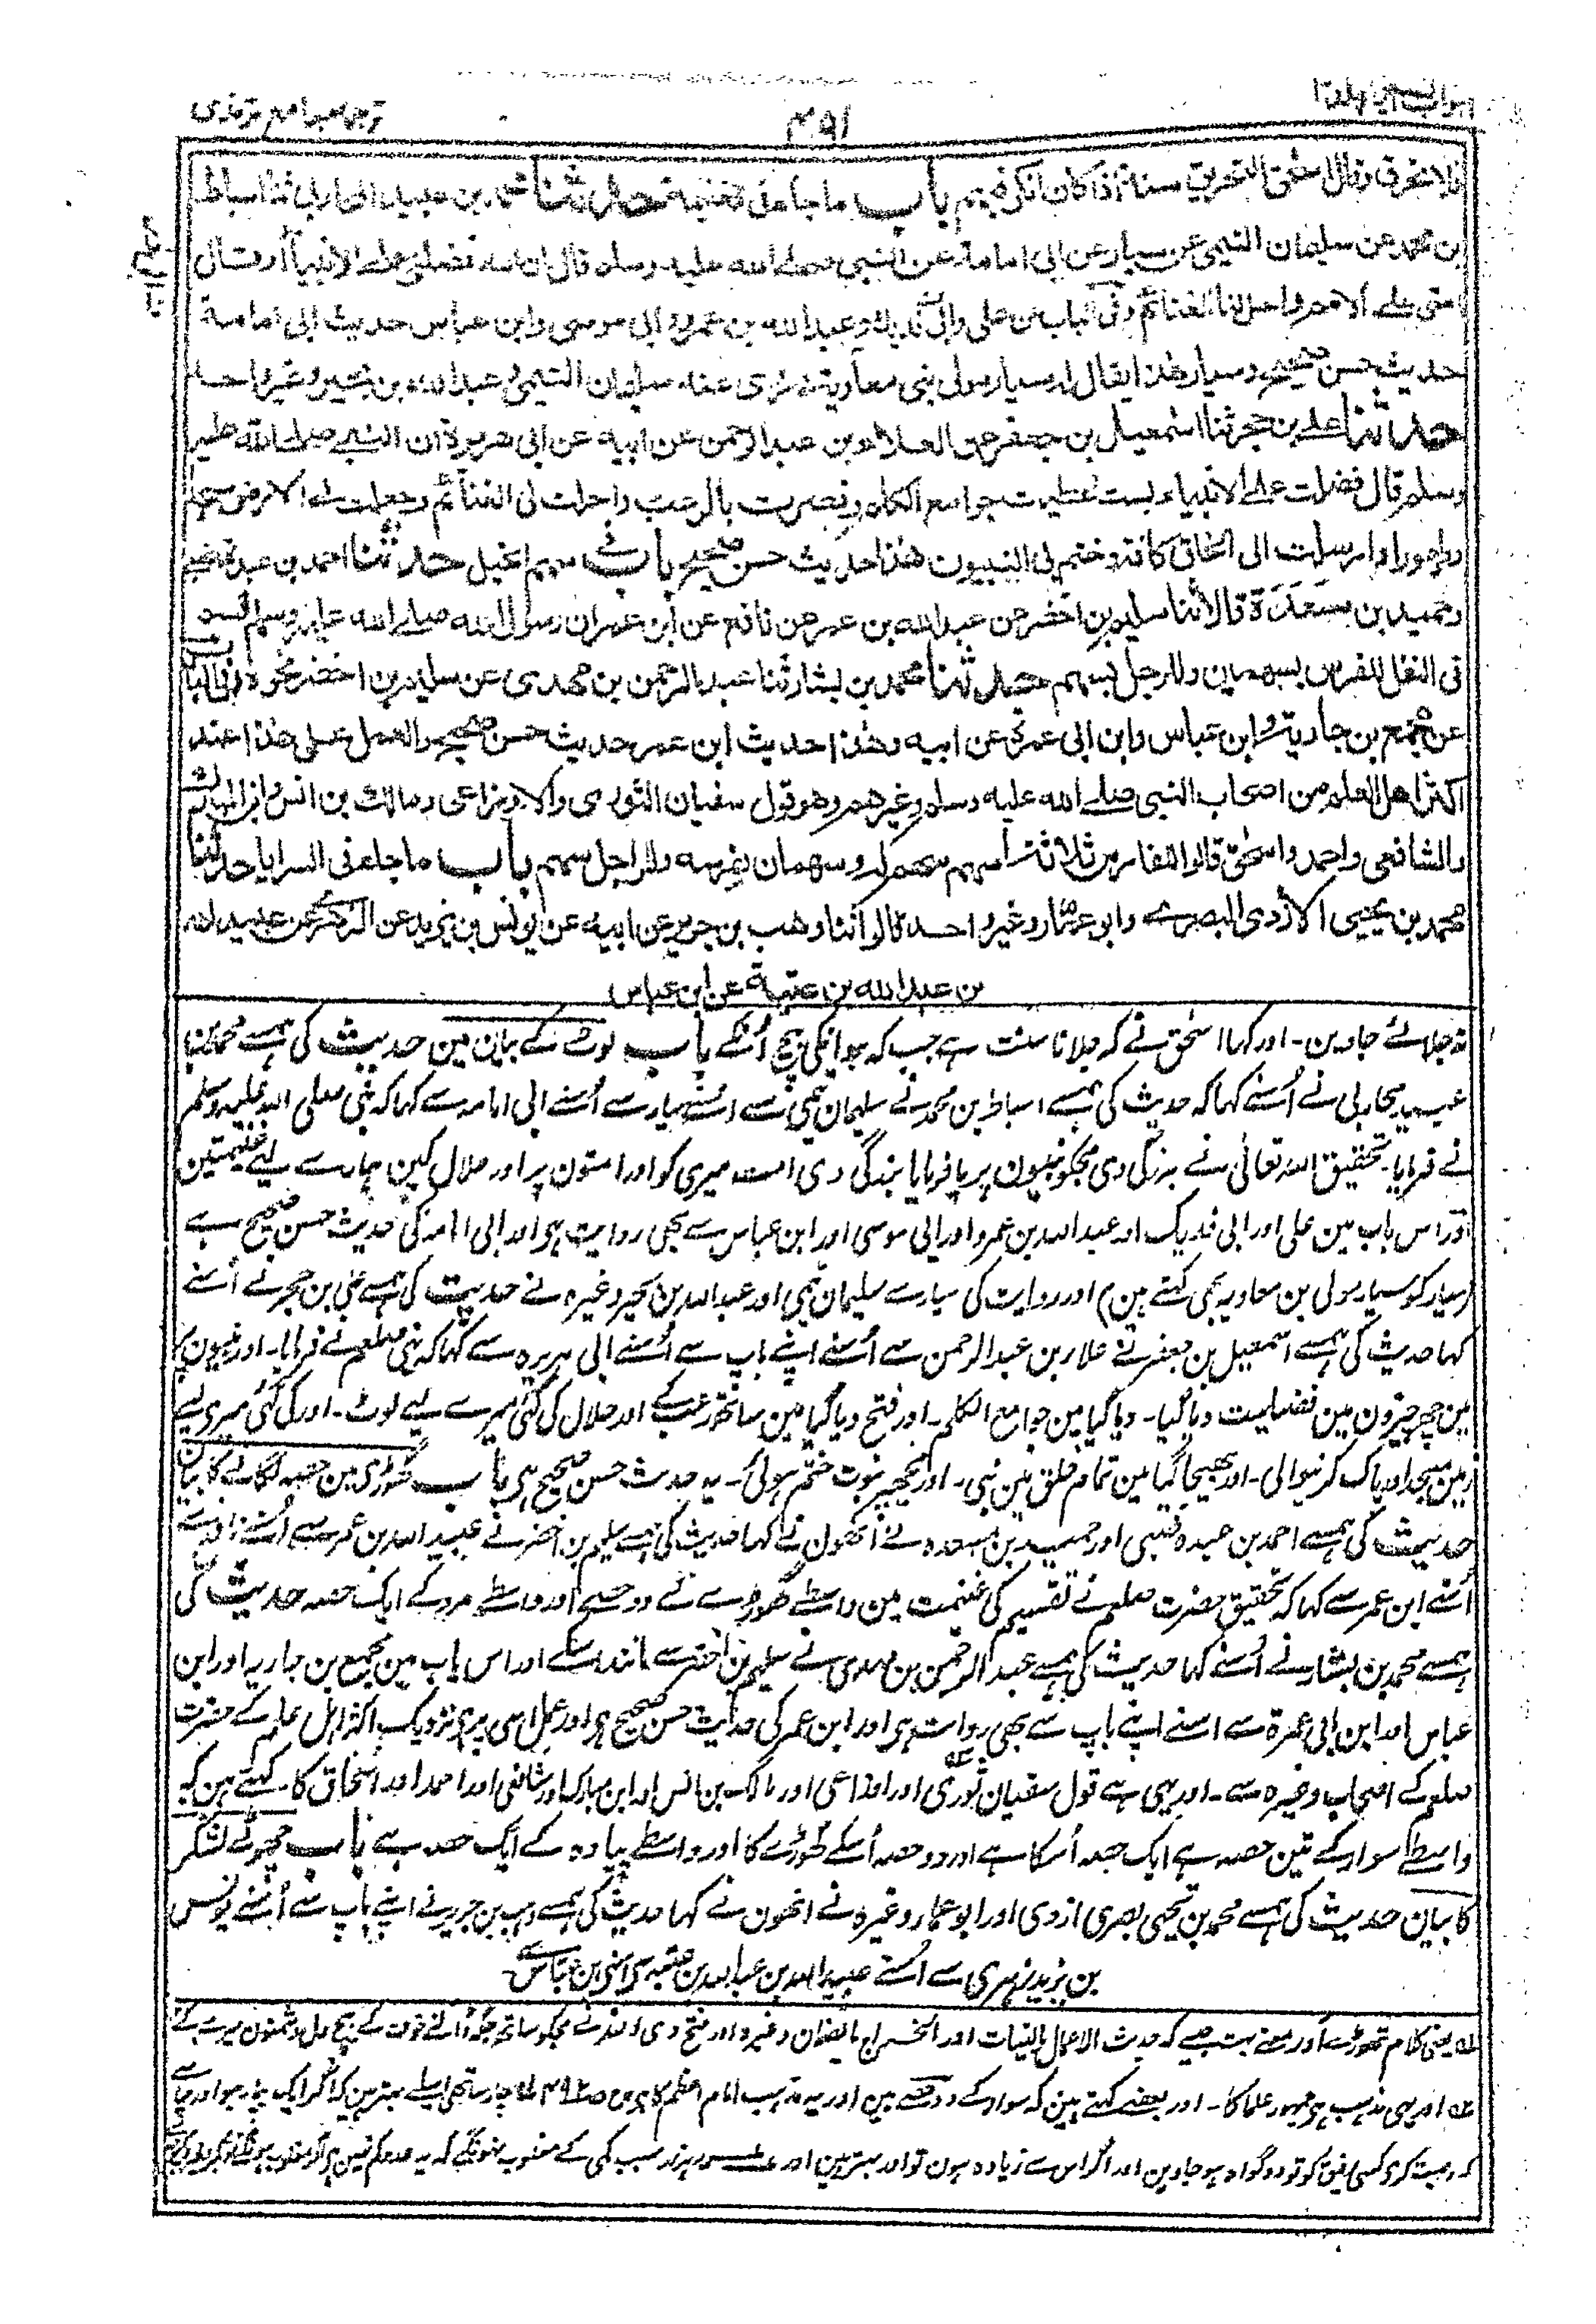 ترجمہ جامع ترمذی
۴۹۱
فلا تحرق وقال اسحٰق التحريق سنة اذا كان انكى فيهم باب ما جاء فى الغنيمة حدثنا محمد بن عبيد المحاربى ثنا اسباط
بن محمد عن سليمان التيمى عن سيار عن ابى امامة عن النبى صلے الله عليه وسلم قال ان الله فضلنى على الانبياء او قال
امتى على الامم واحل لنا الغنائم وفى الباب عن على وابى ذر وعبد الله بن عمرو وابى موسى وابن عباس حديث ابى امامة
حديث حسن صحيح وسيار هذا يقال له سيار مولى بنى معاوية وروى عنه سليمان التيمى وعبد الله بن بحير وغير واحد
حدثنا على بن حجر ثنا اسمعيل بن جعفر عن العلاء بن عبد الرحمن عن ابيه عن ابى هريرة ان النبى صلے الله عليه
وسلم قال فضلت على الانبياء بست اعطيت جوامع الكلم ونصرت بالرعب واحلت لى الغنائم وجعلت لى الارض مسجدا
وطهورا وارسلت الى الخلق كافة وختم بى النبيون هذا حديث حسن صحيح باب فى سهم الخيل حدثنا احمد بن عبدة الضبى
وحميد بن مسعدة قالا ثنا سليم بن اخضر عن عبيد الله بن عمر عن نافع عن ابن عمر ان رسول الله صلے الله عليه وسلم قسم
فى النفل للفرس بسهمين وللرجل بسهم حدثنا محمد بن بشار ثنا عبد الرحمن بن مهدى عن سليم بن اخضر نحوه وفى الباب
عن مجمع بن جارية وابن عباس وابن ابى عمرة عن ابيه وهذا حديث ابن عمر حديث حسن صحيح والعمل على هذا عند
اكثر اهل العلم من اصحاب النبى صلے الله عليه وسلم وغيرهم وهو قول سفيان الثورى والاوزاعى ومالك بن انس وابن المبارك
والشافعى واحمد واسحٰق قالوا للفارس ثلاثة اسهم سهم له وسهمان لفرسه وللراجل سهم باب ما جاء فى السرايا حدثنا
محمد بن يحيى الازدى البصرى وابو عمار وغير واحد قالوا ثنا وهب بن جرير عن ابيه عن يونس بن يزيد عن الزهرى عن عبيد الله
بن عبد الله بن عتبة عن ابن عباس
نہ جلائے جاوین۔ اور کہا اسحٰق نے کہ جلانا سنت ہے جب کہ ہو انکی بیچ اُنکے باب لوٹ کے بیان مین حدیث کی ہمسے محمد بن
عبید محاربی نے اُسنے کہا کہ حدیث کی ہمسے اسباط بن محمد نے سلیمان تیمی سے اسنے سیار سے اُسنے ابی امامہ سے کہا کہ نبی صلی اللہ علیہ وسلم
نے فرمایا۔ تحقیق اللہ تعالٰی نے بزرگی دی مجکو نبیون پر یا فرمایا بزرگی دی امت میری کو اور امتون پر اور حلال کین ہمارے لیے غنیمتین
اور اس باب مین علی اور ابی فدیک اور عبداللہ بن عمرو اور ابی موسی اور ابن عباس سے بھی روایت ہی اور ابی امامہ کی حدیث حسن صحیح ہے
(سیار کو سیار مولی بن معاویہ بھی کہتے ہین) اور روایت کی سیار سے سلیمان تیمی اور عبداللہ بن بحیر وغیرہ نے حدیث کی ہمسے علی بن حجر نے اُسنے
کہا حدیث کی ہمسے اسمعیل بن جعفر نے علاء بن عبدالرحمن سے اُسنے اپنے باپ سے اُسنے ابی ہریرہ سے کہا کہ نبی صلعم نے فرمایا۔ اور نبیون پر
مین چھ چیزون مین فضیلت دیا گیا۔ دیا گیا مین جوامع الکلم۔ اور فتح دیا گیا مین ساتھ رعب کے اور حلال کی گئی میرے لیے لوٹ۔ اور کی گئی میری لیے
زمین مسجد اور پاک کرنیوالی۔ اور بھیجا گیا مین تمام خلق مین نبی۔ اور مجھپر نبوت ختم ہوئی۔ یہ حدیث حسن صحیح ہی باب گھوڑی مین حصہ لگانے کا بیان
حدیث کی ہمسے احمد بن عبدہ ضبی اور حمید بن مسعدہ نے انھون نے کہا حدیث کی ہمسے سلیم بن اخضر نے عبید اللہ بن عمر سے اُسنے نافع سے
اُسنے ابن عمر سے کہا کہ تحقیق حضرت صلعم نے تقسیم کی غنیمت مین واسطے گھوڑے کے دو حصے اور واسطے مرد کے ایک حصہ حدیث کی
ہمسے محمد بن بشار نے اُسنے کہا حدیث کی ہمسے عبدالرحمن بن مہدی نے سلیم بن اخضر سے مانند اسکے اور اس باب مین مجمع بن جاریہ اور ابن
عباس اور ابن ابی عمرۃ سے اسنے اپنے باپ سے بھی روایت ہی اور ابن عمر کی حدیث حسن صحیح ہی اور عمل اسی پر ہی نزدیک اکثر اہل علم کے حضرت
صلعم کے اصحاب وغیرہ سے۔ اور یہی ہے قول سفیان ثوری اور اوزاعی اور مالک بن انس اور ابن مبارک اور شافعی اور احمد اور اسحاق کا۔ کہتے ہین کہ
واسطے سوار کے تین حصہ ہے ایک حصہ اُسکا ہے اور دو حصہ اُسکے گھوڑے کا اور واسطے پیادہ کے ایک حصہ ہے باب چھوٹے لشکر
کا بیان حدیث کی ہمسے محمد بن یحیی بصری ازدی اور ابو عمار وغیرہ نے انھون نے کہا حدیث کی ہمسے وہب بن جریر نے اپنے باپ سے اُسنے یونس
بن یزید زہری سے اُسنے عبید اللہ بن عبداللہ بن عتبہ سے اسنے ابن عباس سے
یعنی کلام تھوڑے اور معنے بہت جیسے کہ حدیث الاعمال بالنیات اور الخراج بالضمان وغیرہ اور فتح دی اللہ نے مجکو ساتھ ڈالنے خوف کے بیچ دل دشمنون میرے کے
اور یہی مذہب ہی جمہور علما کا۔ اور بعضے کہتے ہین کہ سوار کے دو حصے ہین اور یہ مذہب امام اعظم کا ہی چار ساتھی اسلیے بہتر ہین کہ اگر ایک بیمار ہو اور چاہے
کہ وصیت کری کسی رفیق کو تو دو گواہ ہو جاوین اور اگر اس سے زیادہ ہون تو اور بہتر ہین اور بسبب کمی کے مغلوب نہونگے